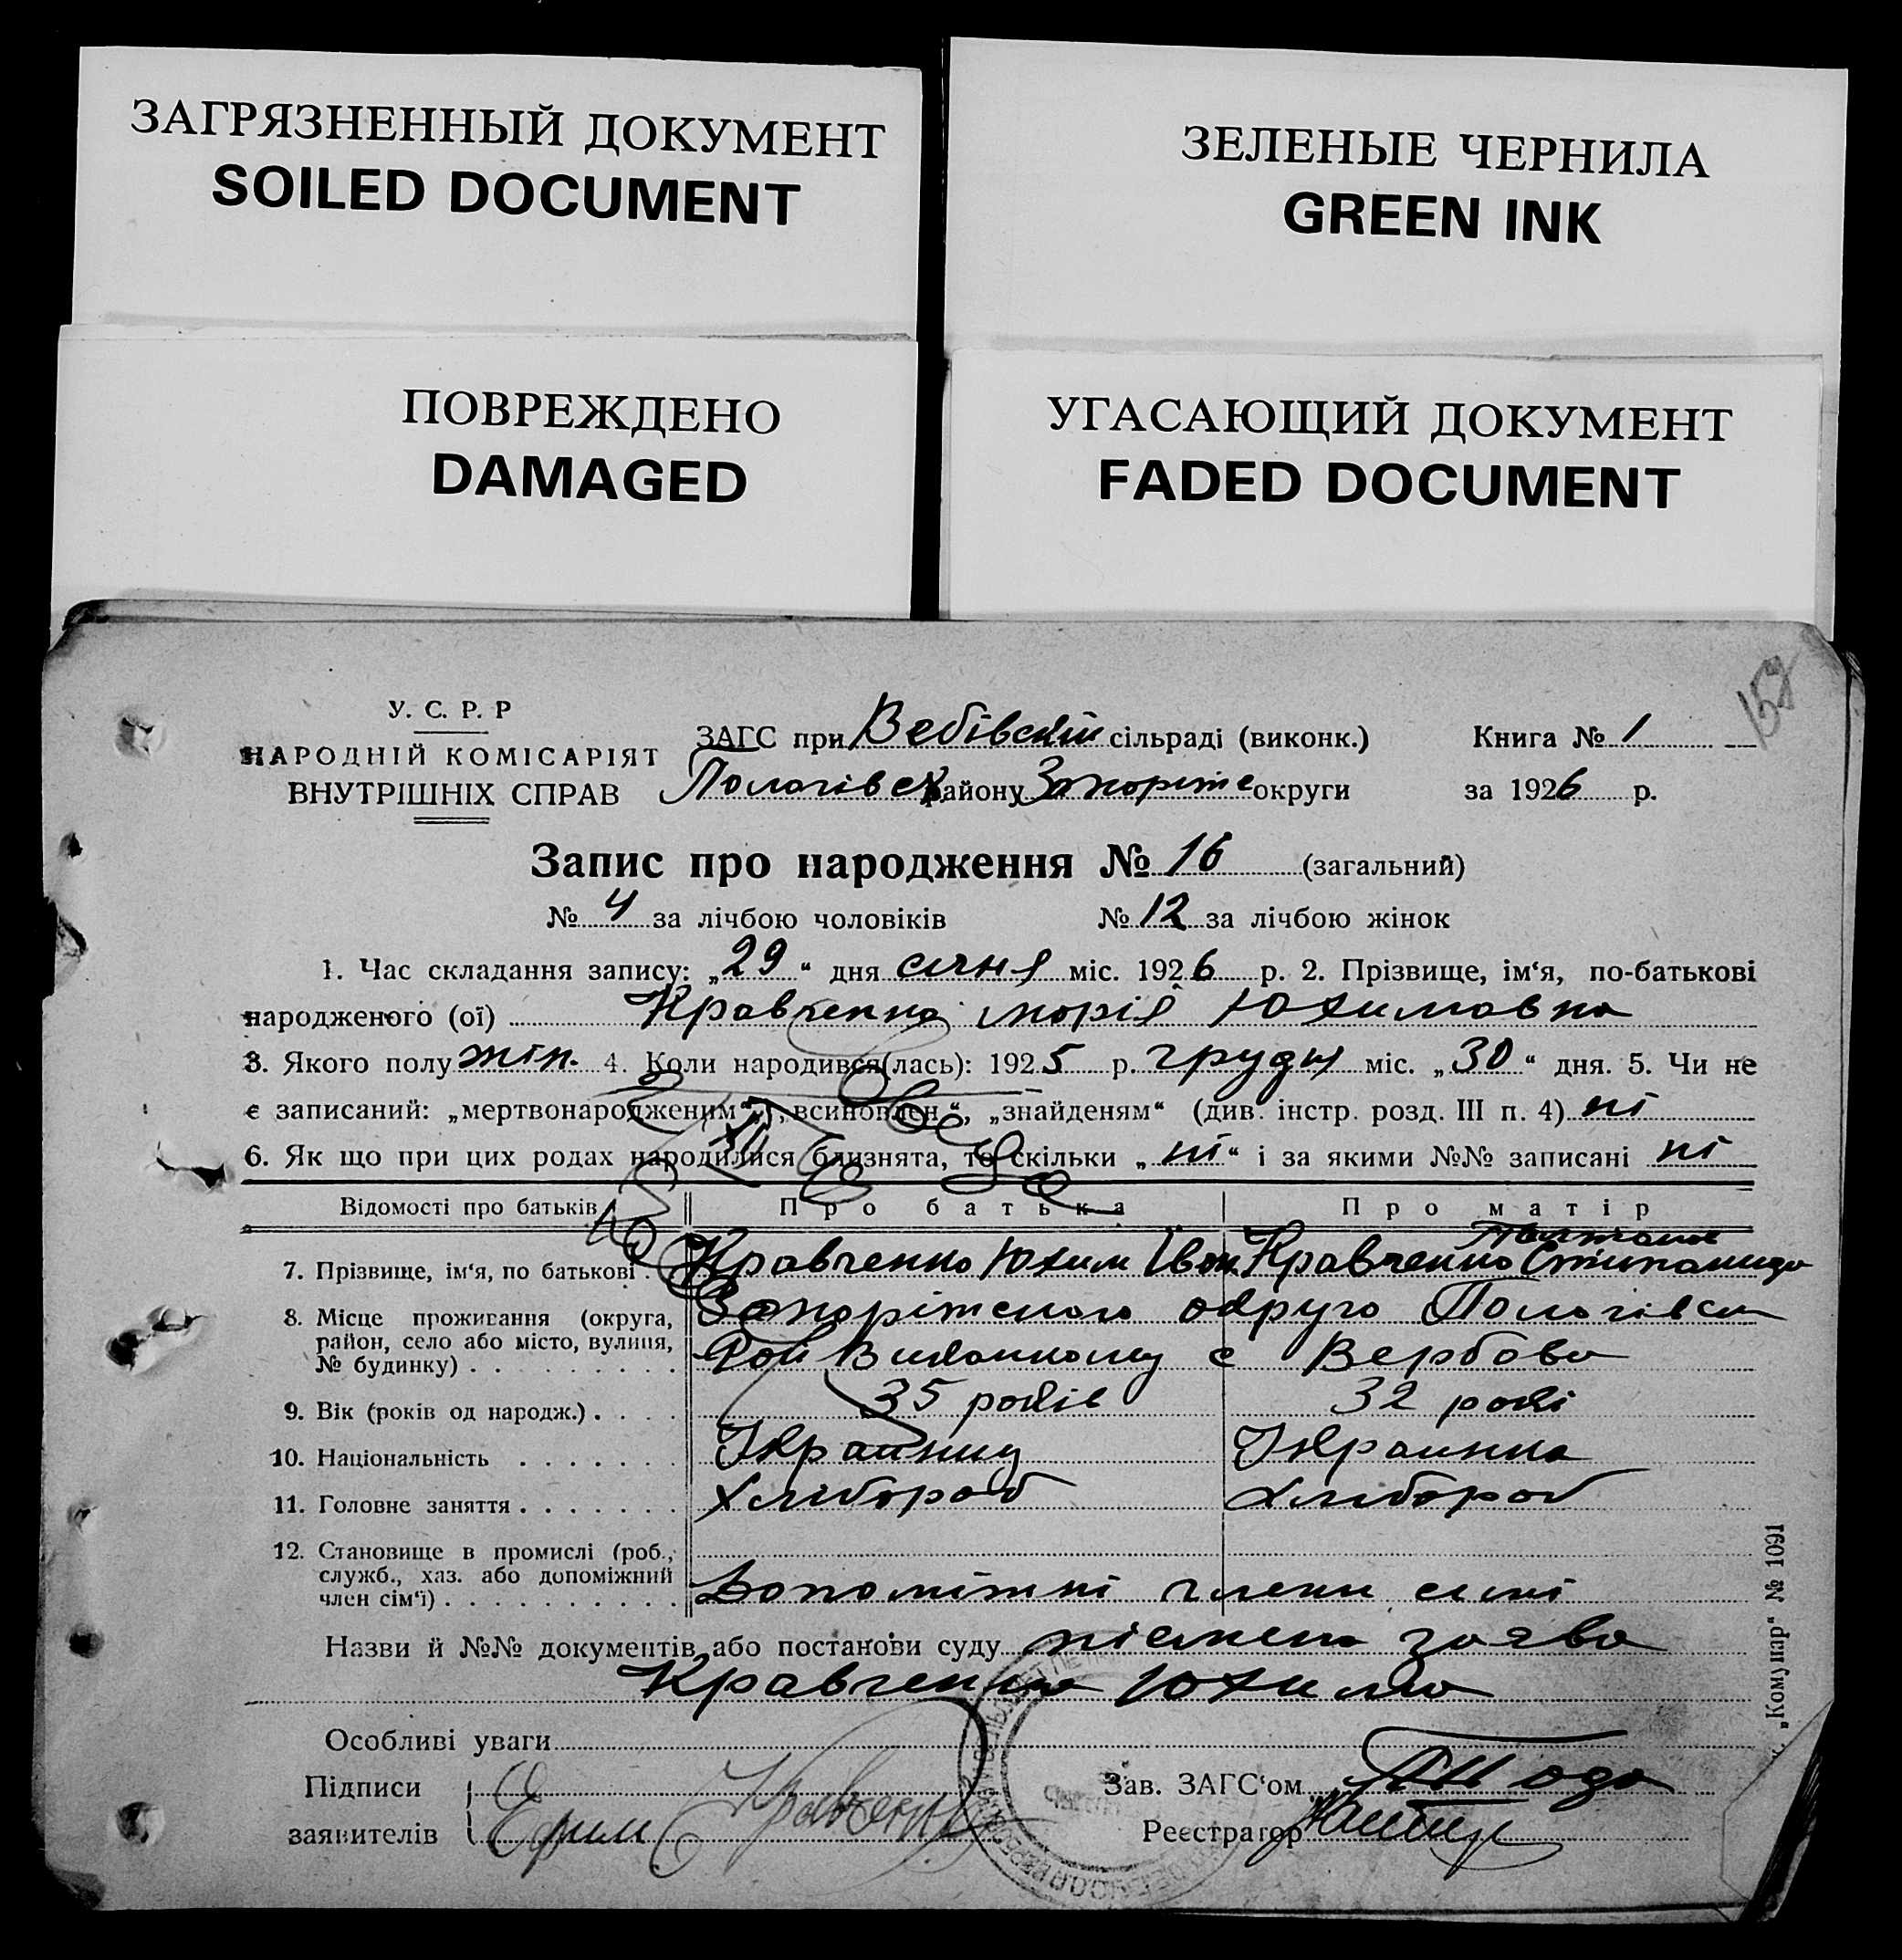 ЗАГРЯЗНЕННЫЙ ДОКУМЕНТ
SOILED DOCUMENT
ЗЕЛЕНЫЕ ЧЕРНИЛА
GREEN INK
ПОВРЕЖДЕНО
DAMAGED
УГАСАЮЩИЙ ДОКУМЕНТ
FADED DOCUMENT
У. С. Р. Р
НАРОДНІЙ КОМІСАРІЯТ
ВНУТРІШНІХ СПРАВ
ЗАГС при Вебівській сільраді (виконк.)
Пологівськ району Запоріж округи
Книга № 1
за 1926 р.
Запис про народження № 16 (загальний)
№ 4 за лічбою чоловіків № 12 за лічбою жінок
1. Час складання запису: „29“ дня січня міс. 1926 р. 2. Прізвище, ім‘я, по-батькові
народженого (ої) Кравченко Марія Юхимовна
3. Якого полу жін. 4. Коли народився(лась): 1925 р. грудн міс. „30“ дня. 5. Чи не
є записаний: „мертвонародженим“, „всиновлен.“, „знайденям“ (див. інстр. розд. III п. 4) ні
6. Як що при цих родах народилися близнята, то скільки „ні“ і за якими №№ записані ні
Відомості про батьків Про батька Про матір
7. Прізвище, ім‘я, по батькові . Кравченко Юхим Іван Кравченко
8. Місце проживання (округа, Запоріжского округа Пологівск
район, село або місто, вулиця, Рай с Вербова
№ будинку)
9. Вік (років од народж.) 35 років 32 рокі
10. Національність Украинец Украинка
11. Головне заняття Хлібороб Хлібороб
12. Становище в промислі (роб.,
служб., хаз. або допоміжний
член сім‘ї) Допоміжні члени симї
Назви й №№ документів або постанови суду заява
Кравченка Юхима
Особливі уваги
Підписи
заявителів Ефим Кравченко
Зав. ЗАГС‘ом
Реєстратор
„Комунар“ № 1091